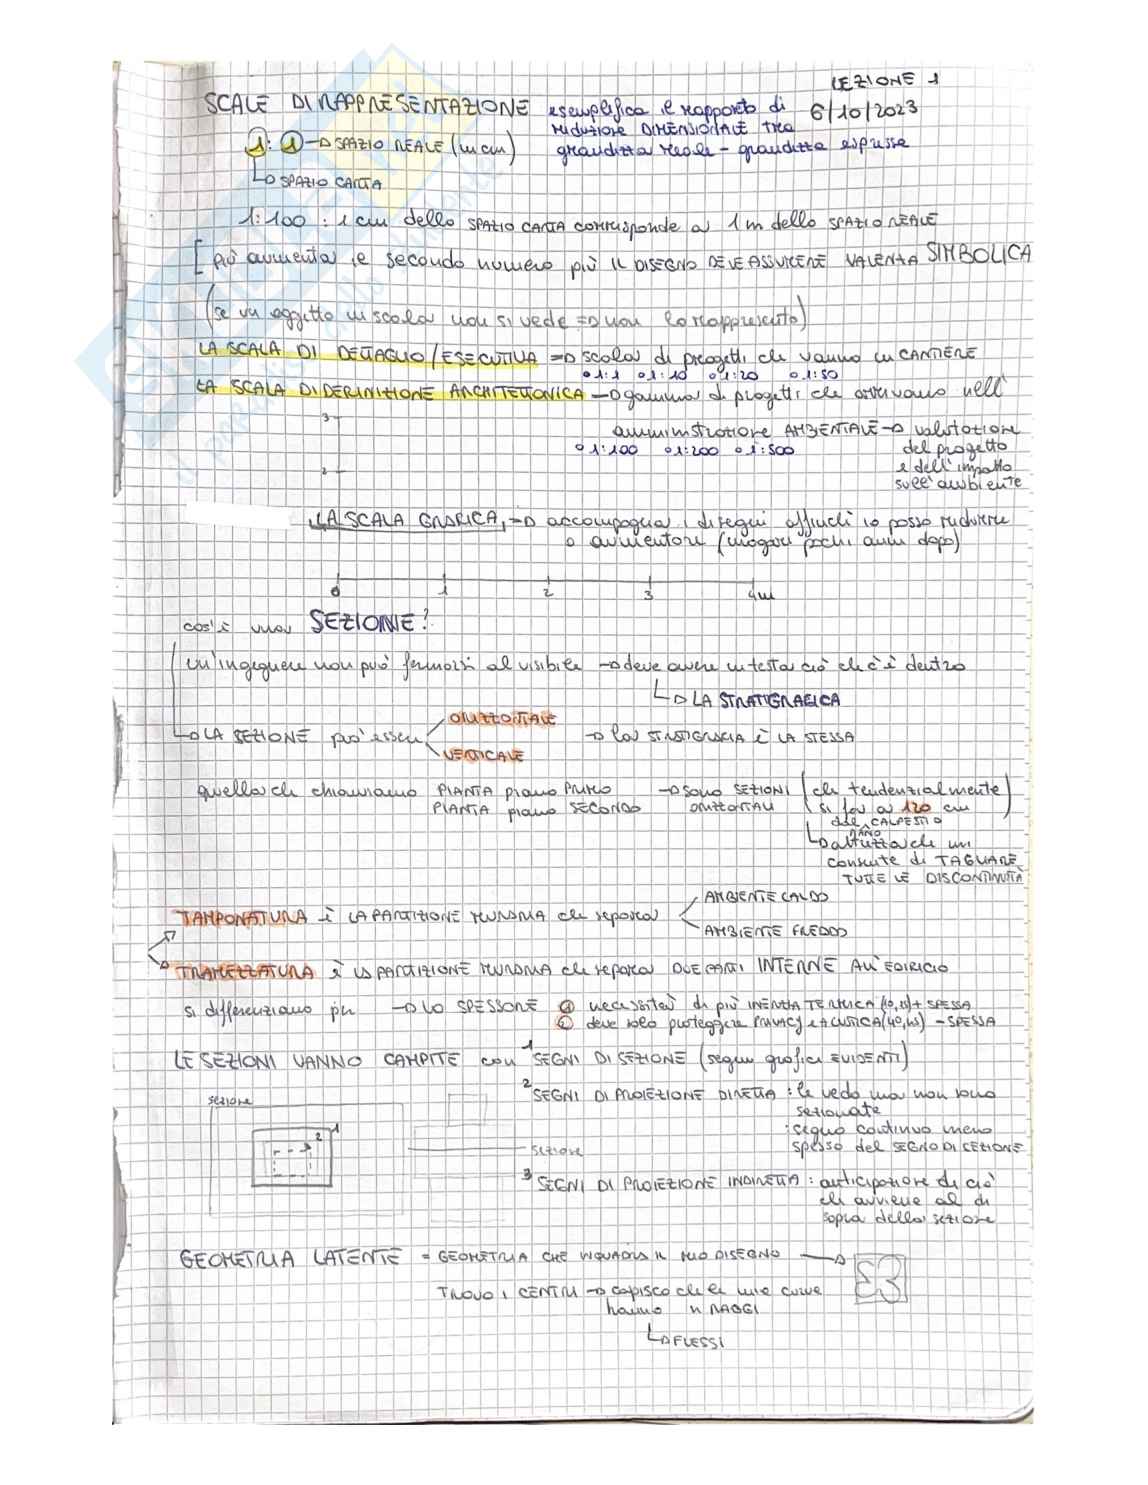 LEZIONE 1
6/10/2023
SCALE DI RAPPRESENTAZIONE esemplifica il rapporto di
riduzione DIMENSIONALE tra
grandezza reale - grandezza espressa
1 : 1 → SPAZIO REALE (in cm)
SPAZIO CARTA
1:100 : 1 cm dello SPAZIO CARTA corrisponde a 1 m dello SPAZIO REALE
[ più aumenta il secondo numero più IL DISEGNO DEVE ASSUMERE VALENZA SIMBOLICA
(se un oggetto in scala non si vede ⇒ non lo rappresento)
LA SCALA DI DETTAGLIO / ESECUTIVA ⇒ scala di progetti che vanno in CANTIERE
• 1:1 • 1:10 • 1:20 • 1:50
LA SCALA DI DEFINIZIONE ARCHITETTONICA → gamma di progetti che arrivano nell'
amministrazione AMBIENTALE → valutazione
del progetto
e dell'impatto
sull'ambiente
• 1:100 • 1:200 • 1:500
3
2
LA SCALA GRAFICA, ⇒ accompagna i disegni affinché io possa ridurre
o aumentare (magari pochi anni dopo)
0 1 2 3 4m
cos'è una SEZIONE?
un'ingegnere non può fermarsi al visibile → deve avere in testa ciò che c'è dentro
LA STRATIGRAFICA
LA SEZIONE può essere
ORIZZONTALE
VERTICALE
→ la STRATIGRAFIA È LA STESSA
quella che chiamiamo PIANTA piano PRIMO → sono SEZIONI (che tendenzialmente
PIANTA piano SECONDO ORIZZONTALI si fa a 120 cm)
dal CALPESTIO
PIANO
altezza che mi
consente di TAGLIARE
TUTTE LE DISCONTINUITÀ
TAMPONATURA è LA PARTIZIONE MURARIA che separa
AMBIENTE CALDO
AMBIENTE FREDDO
TRAMEZZATURA è la PARTIZIONE MURARIA che separa DUE PARTI INTERNE ALL'EDIFICIO
si differenziano per → LO SPESSORE ① necessità di più INERZIA TERMICA + SPESSA
② deve solo proteggere PRIVACY e ACUSTICA - SPESSA
LE SEZIONI VANNO CAMPITE con 1 SEGNI DI SEZIONE (segni grafici EVIDENTI)
2 SEGNI DI PROIEZIONE DIRETTA : le vedo ma non sono
sezionate
: segno continuo meno
spesso del SEGNO DI SEZIONE
sezione
1
2
sezione
3 SEGNI DI PROIEZIONE INDIRETTA : anticipazione di ciò
che avviene al di
sopra della sezione
GEOMETRIA LATENTE = GEOMETRIA CHE INQUADRA IL MIO DISEGNO →
TROVO I CENTRI → capisco che le mie curve
hanno n RAGGI
FLESSI